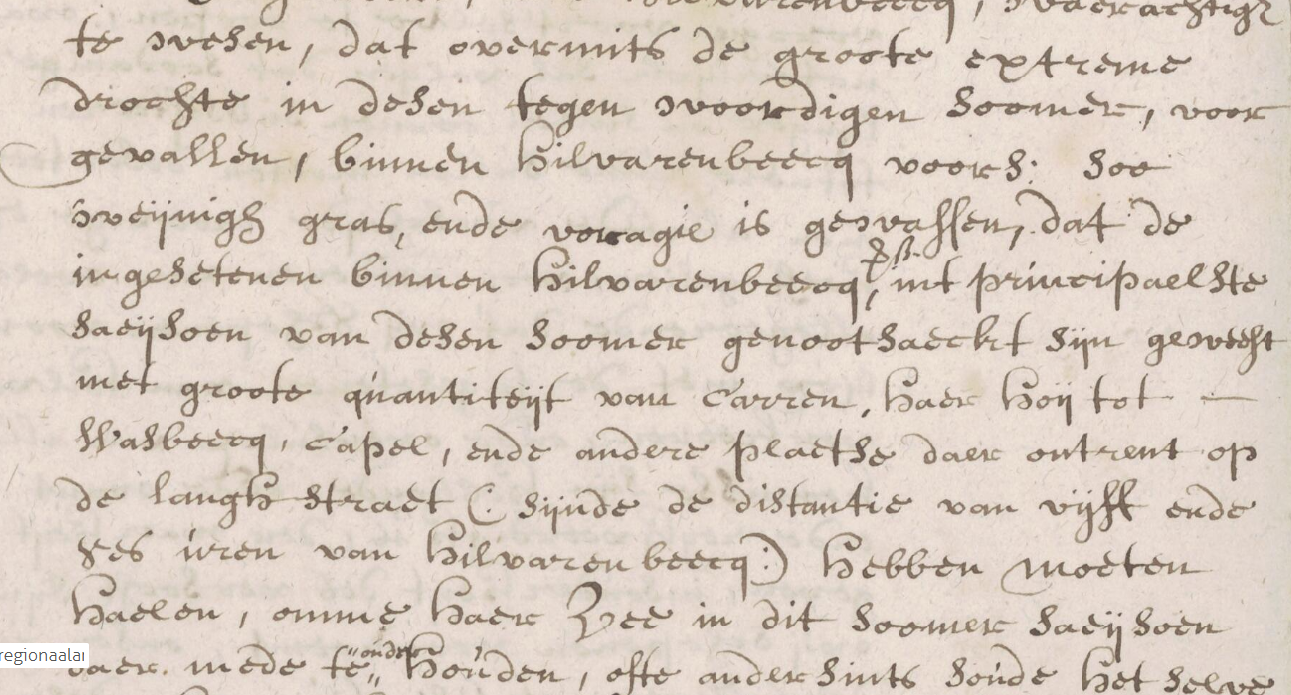 te wesen, dat overmits de groote extreme
drochte in desen tegen woordigen soomer, voor
gevallen, binnen Hilvarenbeecq voors: soo
weijnigh gras, ende voeragie is gewassen, dat de
ingesetenen binnen Hilvarenbeecq, int principaelste
saeijsoen van desen soomer genootsaeckt sijn geweest
met groote quantiteijt van Carren, haer hoij tot
Wasbeecq, Capel, ende andere plaetse daer ontrent op
de langh straet (: sijnde de distantie van vijff ende
ses uren van Hilvarenbeecq:) hebben moeten
haelen, omme haer Vee in dit soomer saeijsoen
daer mede te onder houden, ofte andersints soude het selve
regionaalar